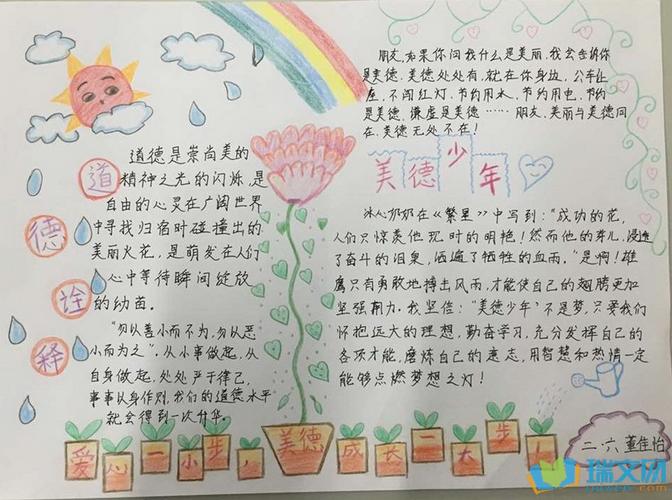 道德诠释
道德是崇尚美的
精神之光的闪烁,是
自由的心灵在广阔世界
中寻找归宿时碰撞出的
美丽火花,是萌发在人们
心中等待瞬间绽放
的幼苗。
"勿以善小而不为,勿以恶
小而为之"。从小事做起,从
自身做起,处处严于律己,
事事以身作则,我们的道德水平
就会得到一次升华。
朋友,如果你问我什么是美丽,我会告诉你
是美德。美德处处有,就在你身边,公车让
座,不闯红灯,节约用水,节约用电,节约
是美德,谦虚是美德……朋友,美丽与美德同
在,美德无处不在!
美德少年
冰心奶奶在《繁星》中写到:"成功的花,
人们只惊羡他现时的明艳!然而他的芽儿,浸透
了奋斗的泪泉,洒遍了牺牲的血雨。"是啊!雄
鹰只有勇敢地搏击风雨,才能使自己的翅膀更加
坚强有力。我坚信:"美德少年"不是梦,只要我们
怀抱远大的理想,勤奋学习,充分发挥自己的
各项才能,磨炼自己的意志,用智慧和热情一定
能够点燃梦想之灯!
爱心一小步,美德成长一大步
二·六 董佳怡
瑞文网